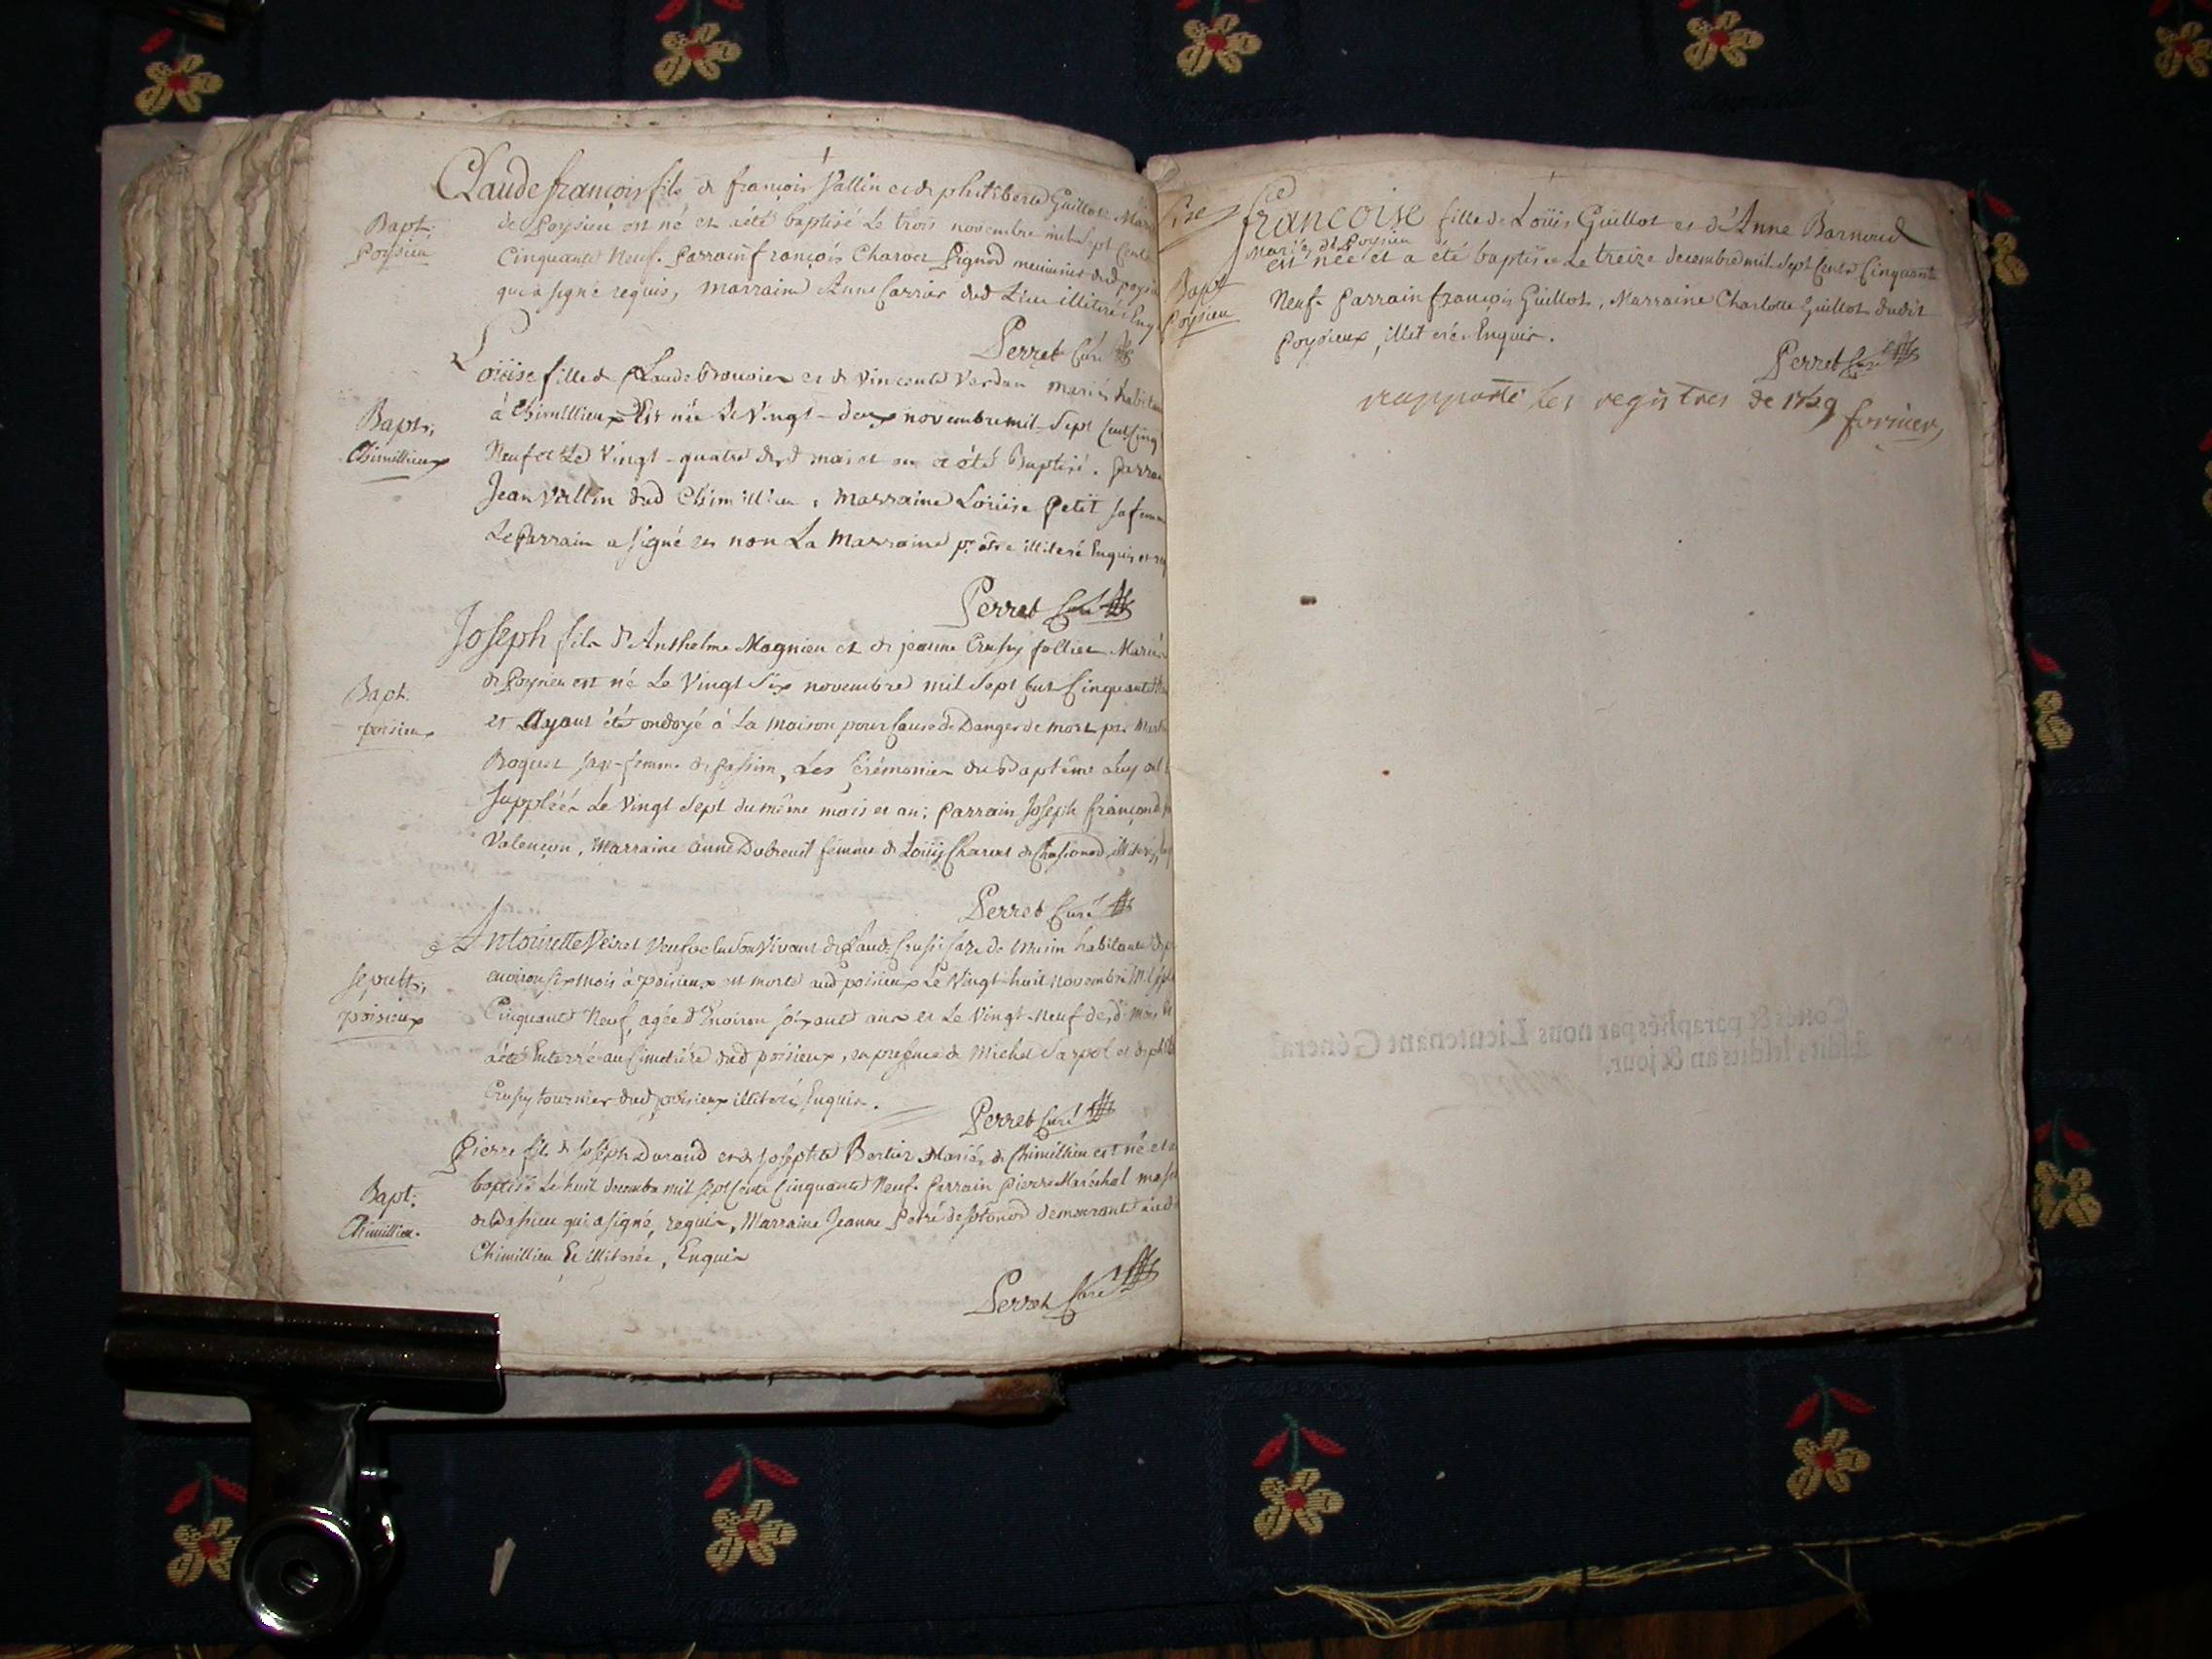 Claude françois fils de françois Vallin et de philiberte Guillot Mari
Bapt:
Poysieu
de Poysieu est né et a été baptisé Le trois novembre mil Sept Cents
Cinquante Neuf. Parrain françois Charvet Pignod meunier dud poysi
qui a signé requis, marraine Anne Carrier dud Lieu illiterés Enq
Perret Curé
Loüise fille de Claude et de Vincente Verdan mariés habitan
Bapt;
Chimillieux
à Chimillieux Est née Le Vingt-deux novembre mil-Sept Cent Cinq
Neuf et Le Vingt-quatre dud mois et an a été Baptisé. Parrai
Jean Vallin dud Chimillieu, Marraine Loüise Petit sa femm
Le Parrain a signé et non La Marraine pr être illiteré Enquis et re
Perret Curé
Joseph fils d'Anthelme Magnieu et de jeanne Crusy follier Mariés
Bapt.
poisieux
de Poysieu est né Le Vingt Six novembre mil Sept Cent Cinquante
et Ayant été ondoyé à La maison pour Cause de Danger de mort par
Roquet sage-femme de Passin, Les Cérémonies du Baptême Luy ont
Suppléés Le Vingt Sept du même mois et an; Parrain Joseph françon
Valençon, Marraine Anne Dubreuil femme de Loüis Charvet illiterés
Perret Curé
Antoinette Veiret Veufve de Claude Crusi de habitante
Sepult;
poisieux
environ six mois à poisieux est morte aud poisieux Le Vingt-huit Novembre Mil Sept
Cinquante Neuf, agée d'Environ soixante ans et Le Vingt-neuf desd mois
a été Enterré au Cimetiére dud poisieux, en presence de Michel Sarpol et de phili
Crusy tournier dud poisieux illiterés Enquis.
Perret Curé
Pierre fils de Joseph Durand et de Josephte Bertier Mariés de Chimillieu est né et a
Bapt:
Chimillieu.
baptisé Le huit decembre mil sept Cents Cinquante Neuf. Parrain Pierre Maréchal
qui a signé, requis, Marraine Jeanne Petré de Sotonod demeurante aud
Chimillieu Et illiterée, Enquis
Perret Curé
françoise fille de Loüis Guillot et d'Anne Barnoud
Mariés de Poysieu
Bapt
Poysieu
est née et a été baptisée Le treize decembre mil-Sept Cents Cinquante
Neuf. Parrain françois Guillot, Marraine Charlotte Guillot dudit
Poysieux, illiterés Enquis.
Perret Curé
rapporté les registres de 1759
Cottés & paraphés par nous Lieutenant Général
lesdits an & jour.